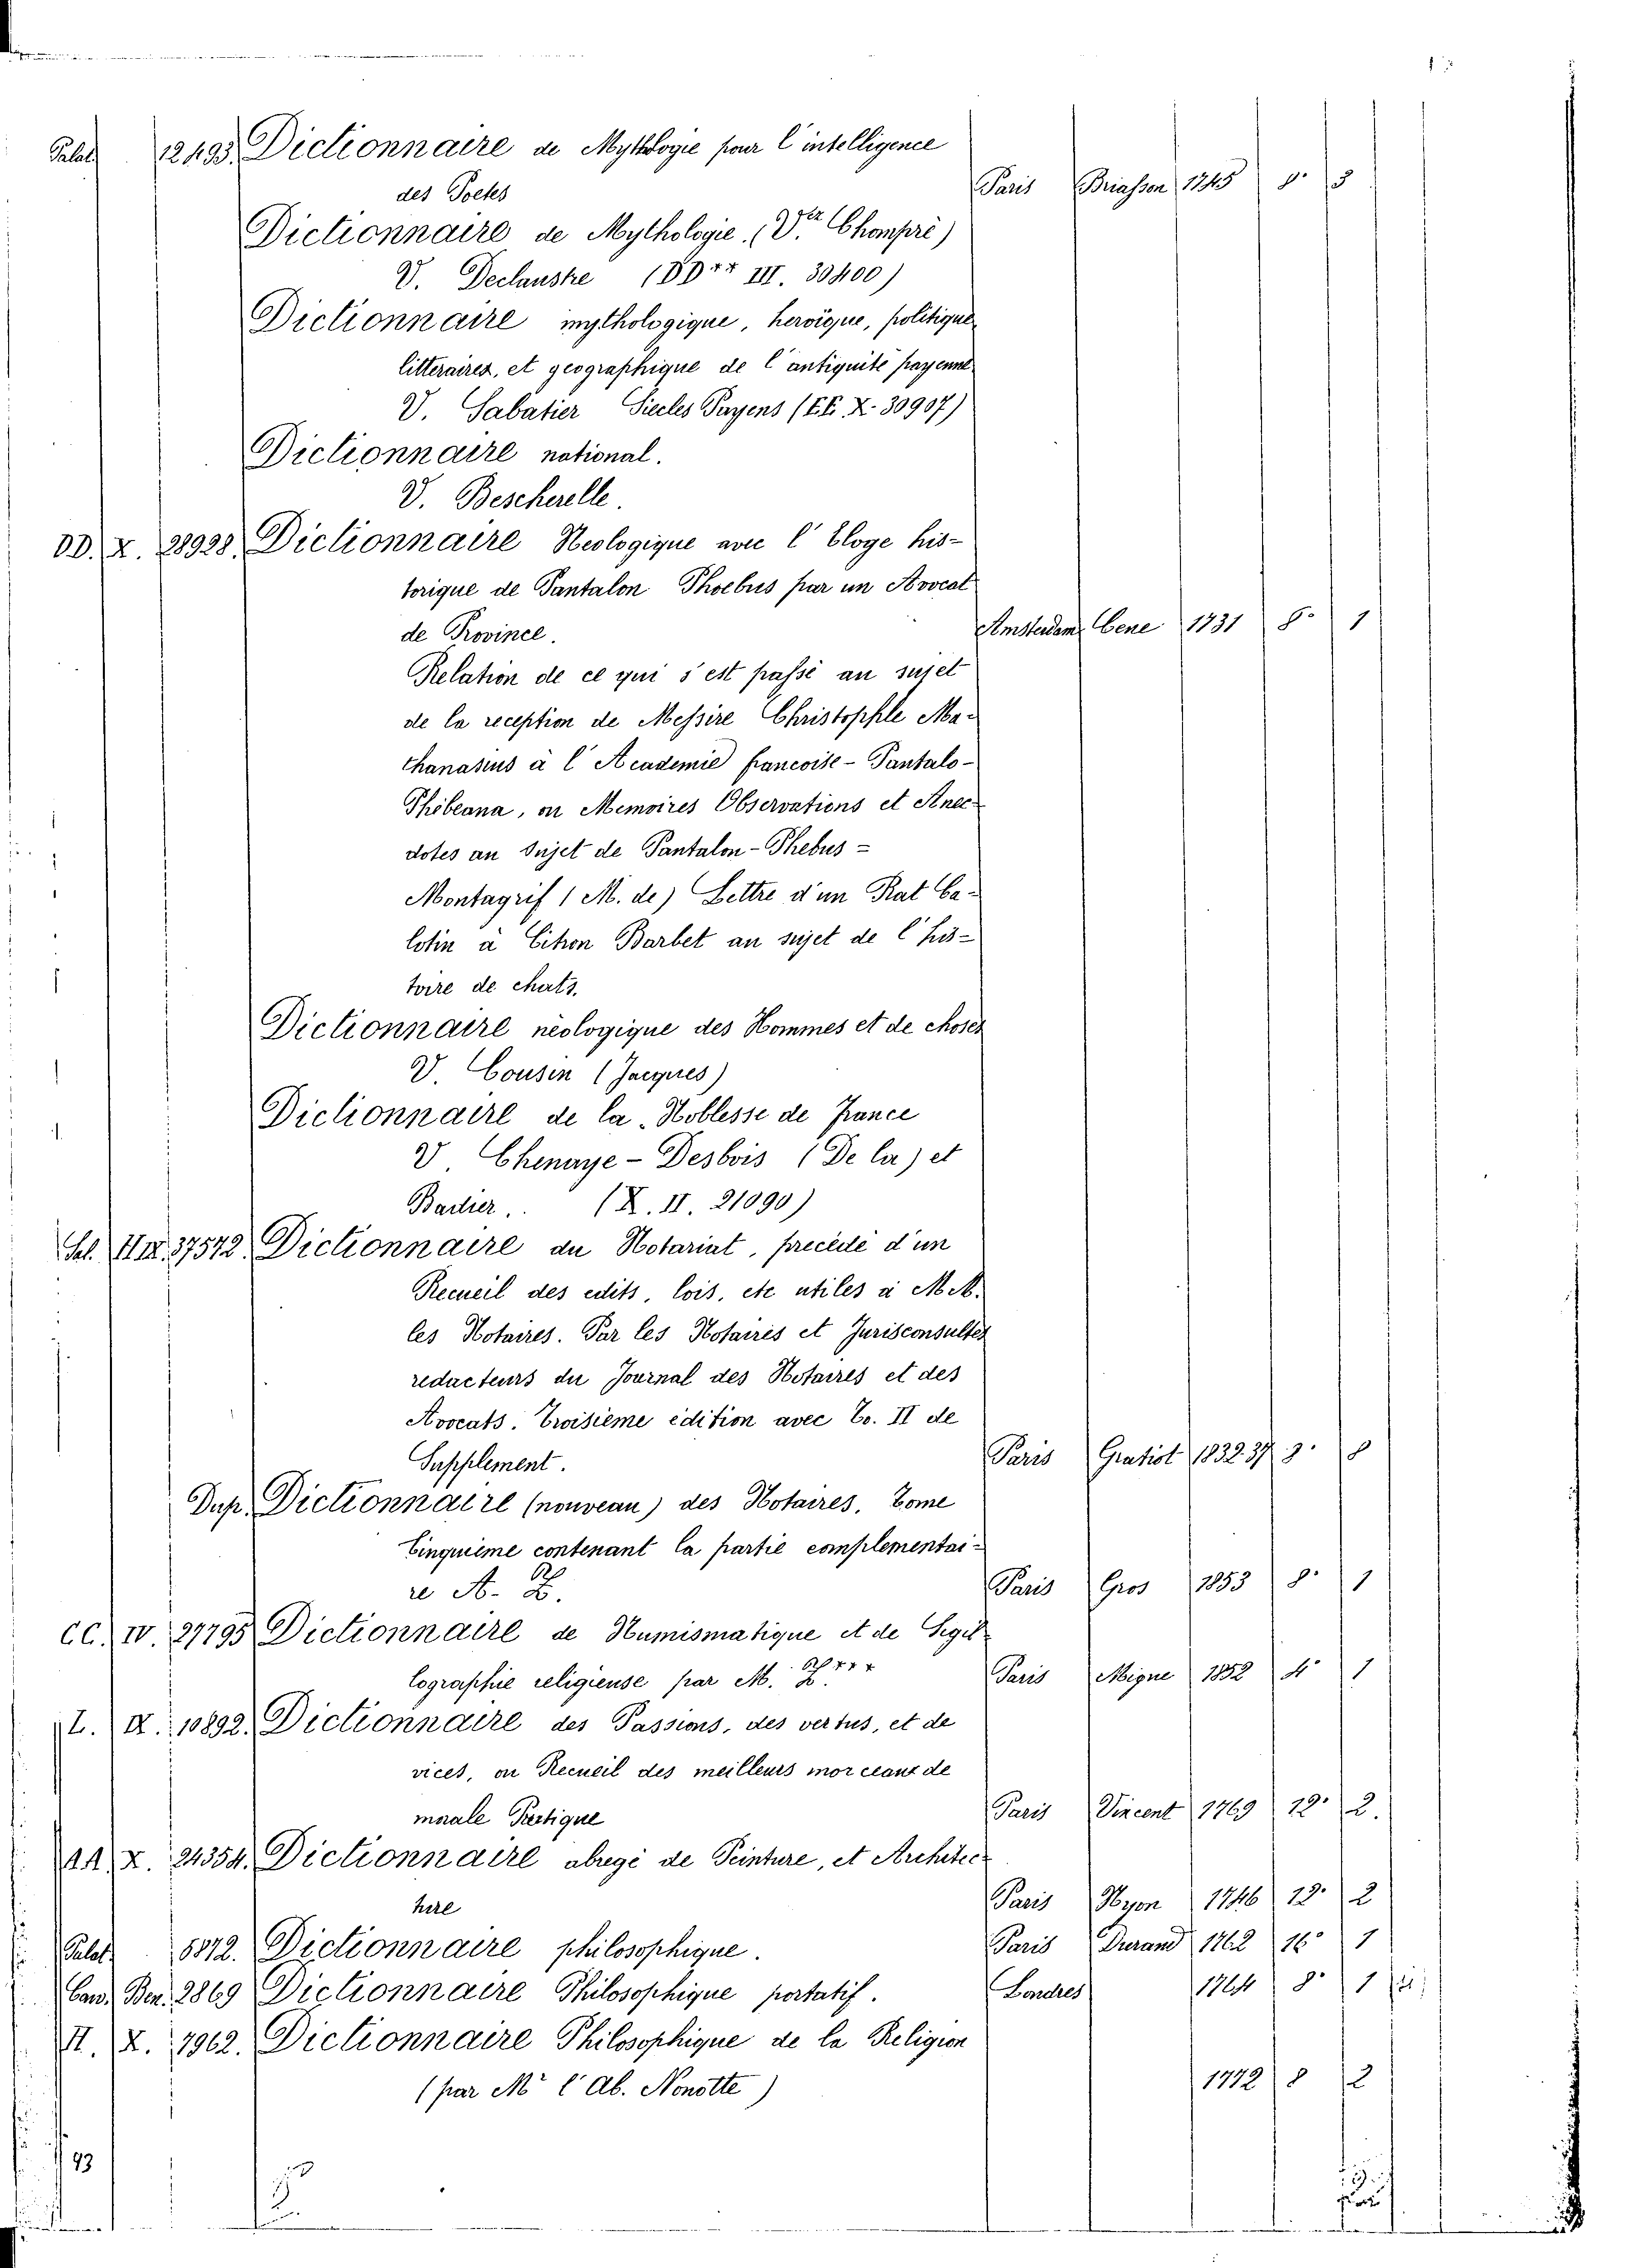 Palat. 12493. Dictionnaire de Mythologie pour l'intelligence
des Poetes Paris Briasson 1745 8.° 3
Dictionnaire de Mythologie. (V. Chompré)
V. Declaustre (DD** III. 30400)
Dictionnaire mythologique, heroique, politique,
litteraires, et geographique de l'antiquité payenne
V. Sabatier Siecles Payens (EE. X. 30907)
Dictionnaire national.
V. Bescherelle.
DD. X. 28928. Dictionnaire Neologique avec l'Eloge his-
torique de Pantalon Phoebus par un Avocat
de Province. Amsterdam Cene 1731 8.° 1
Relation de ce qui s'est passé au sujet
de la reception de Messire Christophle Ma-
thanasius à l'Academie francoise - Pantalo-
Phibeana, ou Memoires Observations et Anec-
dotes au Sujet de Pantalon-Phebus =
Montagrif (M. de) Lettre d'un Rat Ca-
lotin à Citron Barbet au sujet de l'his-
toire de chats.
Dictionnaire néologique des Hommes et de choses
V. Cousin (Jacques)
Dictionnaire de la Noblesse de France
V. Chenaye-Desbois (De la) et
Badier. (X. II. 21090)
Sal. II IX. 37572. Dictionnaire du Notariat, precédé d'un
Recueil des edits, lois, etc utiles à MM.
les Notaires. Par les Notaires et Jurisconsultes
redacteurs du Journal des Notaires et des
Avocats. Troisieme édition avec To. II de
Supplement. Paris Gratiot 1832.37 8.° 8
Dup. Dictionnaire (nouveau) des Notaires, Tome
Cinquieme contenant la partie complementai-
re A-Z. Paris Gros 1853 8.° 1
CC. IV. 27795 Dictionnaire de Numismatique et de Sigil-
lographie religieuse par M. Z*** Paris Migne 1852 4° 1
L. IX. 10892. Dictionnaire des Passions, des vertus, et de
vices, ou Recueil des meilleurs morceaux de
morale Pratique Paris Vincent 1769 12.° 2.
AA. X. 24354. Dictionnaire abregé de Peinture, et Architec-
ture Paris Nyon 1746 12.° 2
Palat. 5872. Dictionnaire philosophique. Paris Durand 1762 16° 1
Can. Ben. 2869 Dictionnaire Philosophique portatif. Londres 1764 8.° 1
II. X. 7962. Dictionnaire Philosophique de la Religion
(par Mr l'Ab. Nonotte) 1772 8 2